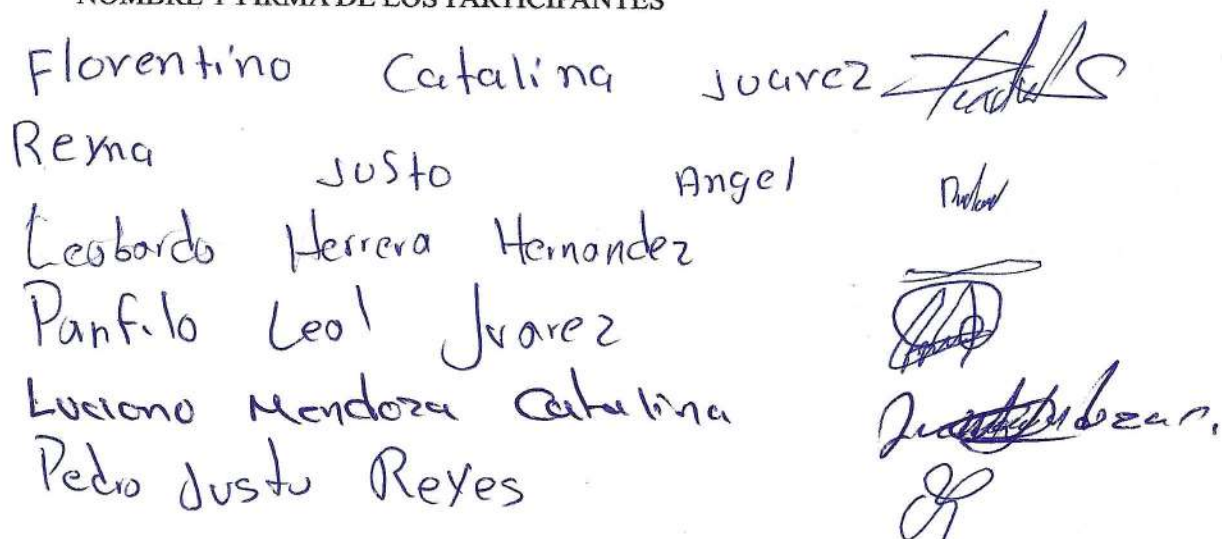 NOMBRE Y FIRMA DE LOS PARTICIPANTES
Florentino Catalina Juarez
Reyna Justo Angel
Leobardo Herrera Hernandez
Panfilo Leal Juarez
Luciano Mendoza Catalina
Pedro Justo Reyes